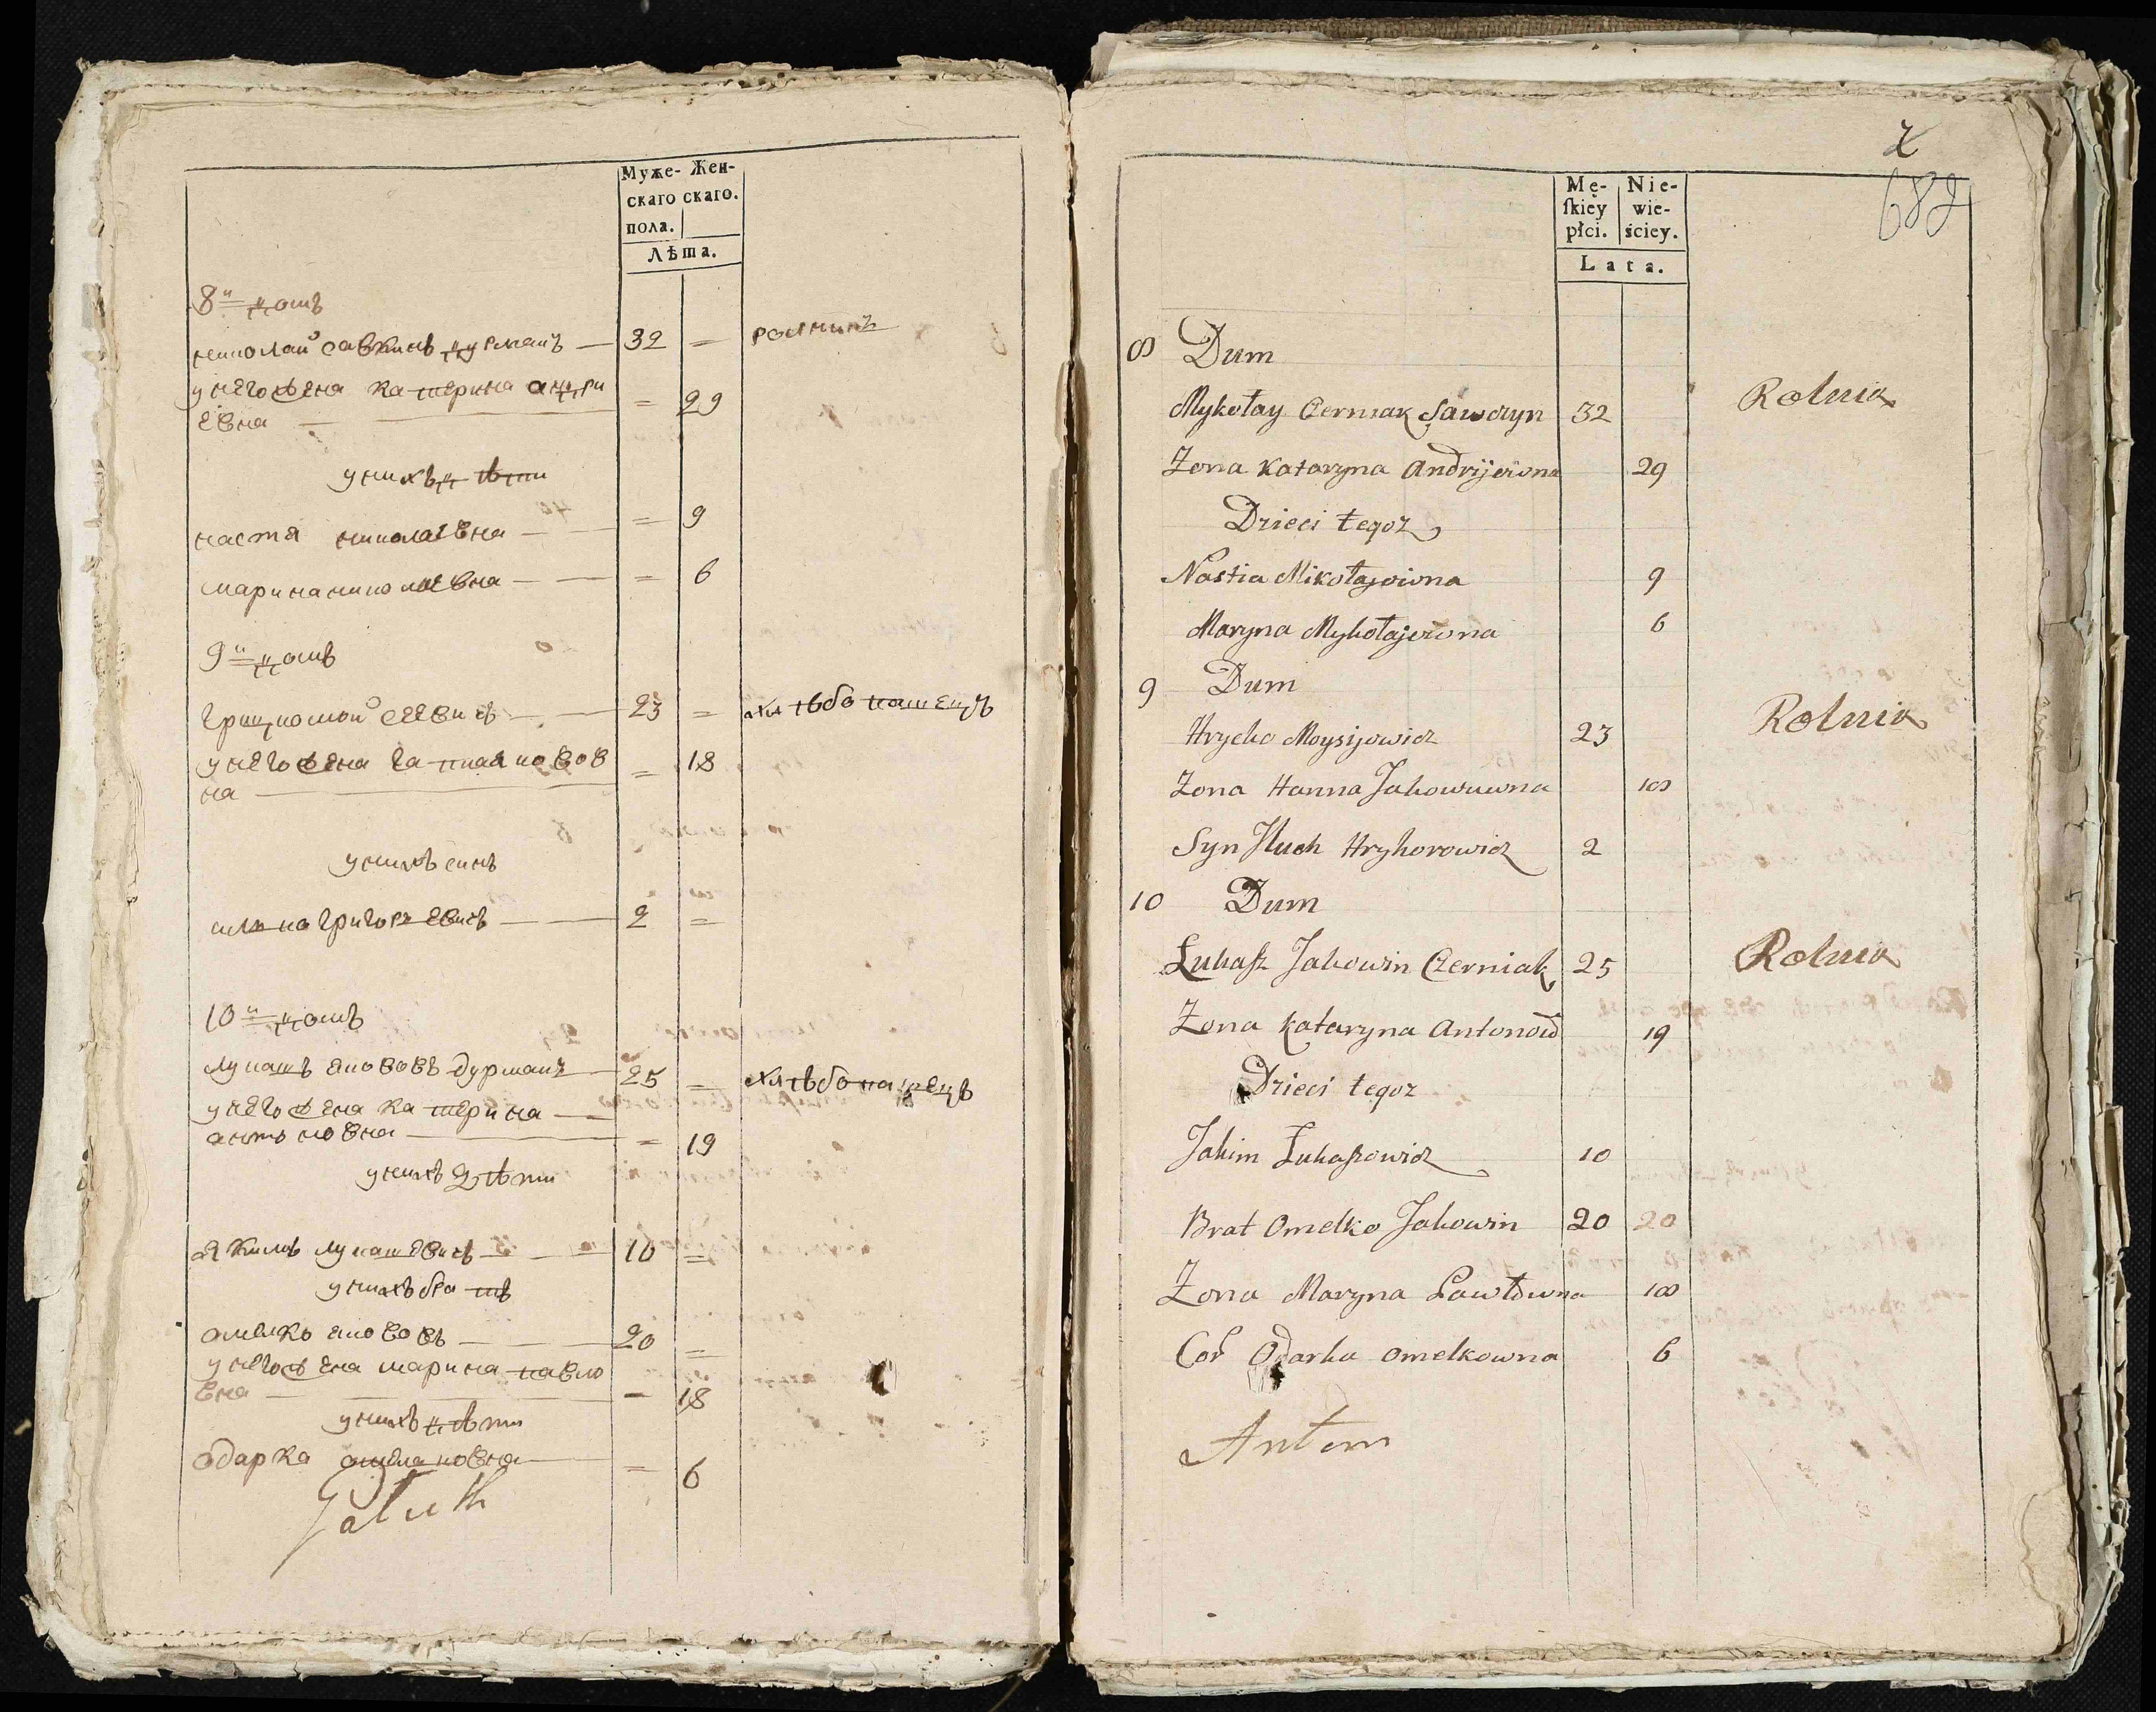 Муже- Жен-
скаго скаго.
пола.
Лѣта.
8й домъ
николай савкинъ дурманъ — 32 = ролникъ
у него жена катерина андри
евна — = 29
у нихъ дѣти
настя николаевна — = 9
марина николаевна — = 6
9й домъ
грицко мойсеевичъ — 23 = хлѣбопашецъ
у него жена ганна яковов
на — = 18
у нихъ синъ
илько григорьевичъ — 2 =
10й домъ
лукашъ якововъ дурманъ 25 = хлѣбопашецъ
у него жена катерина —
антоновна — = 19
у нихъ дѣти
якимъ лукашевичъ — 10 =
у нихъ братъ
омелко якововъ — 20 =
у него жена марина павло
вна — = 18
у нихъ дѣти
одарка омелковна — = 6
2
682
Mę- Nie-
ſkiey wie-
płci. ściey.
Lata.
8 Dum
Mykołay Czerniak Sawczyn 32 Rolnik
Zona Katarzyna Andryjewna 29
Dzieci tegoz
Nastia Mikołajowna 9
Maryna Mykołajewna 6
9 Dum
Hrycko Moysijowicz 23 Rolnik
Zona Hanna Jakowuwna 18
Syn Iluch Hryhorowicz 2
10 Dum
Łukaſz Jakowin Czerniak 25 Rolnik
Zona Katarzyna Antonow 19
Dzieci tegoz
Jakim Łukaſzowicz 10
Brat Omelko Jakowin 20 20
Zona Maryna Pawłowna 18
Cor Odarka Omelkowna 6
Antoni